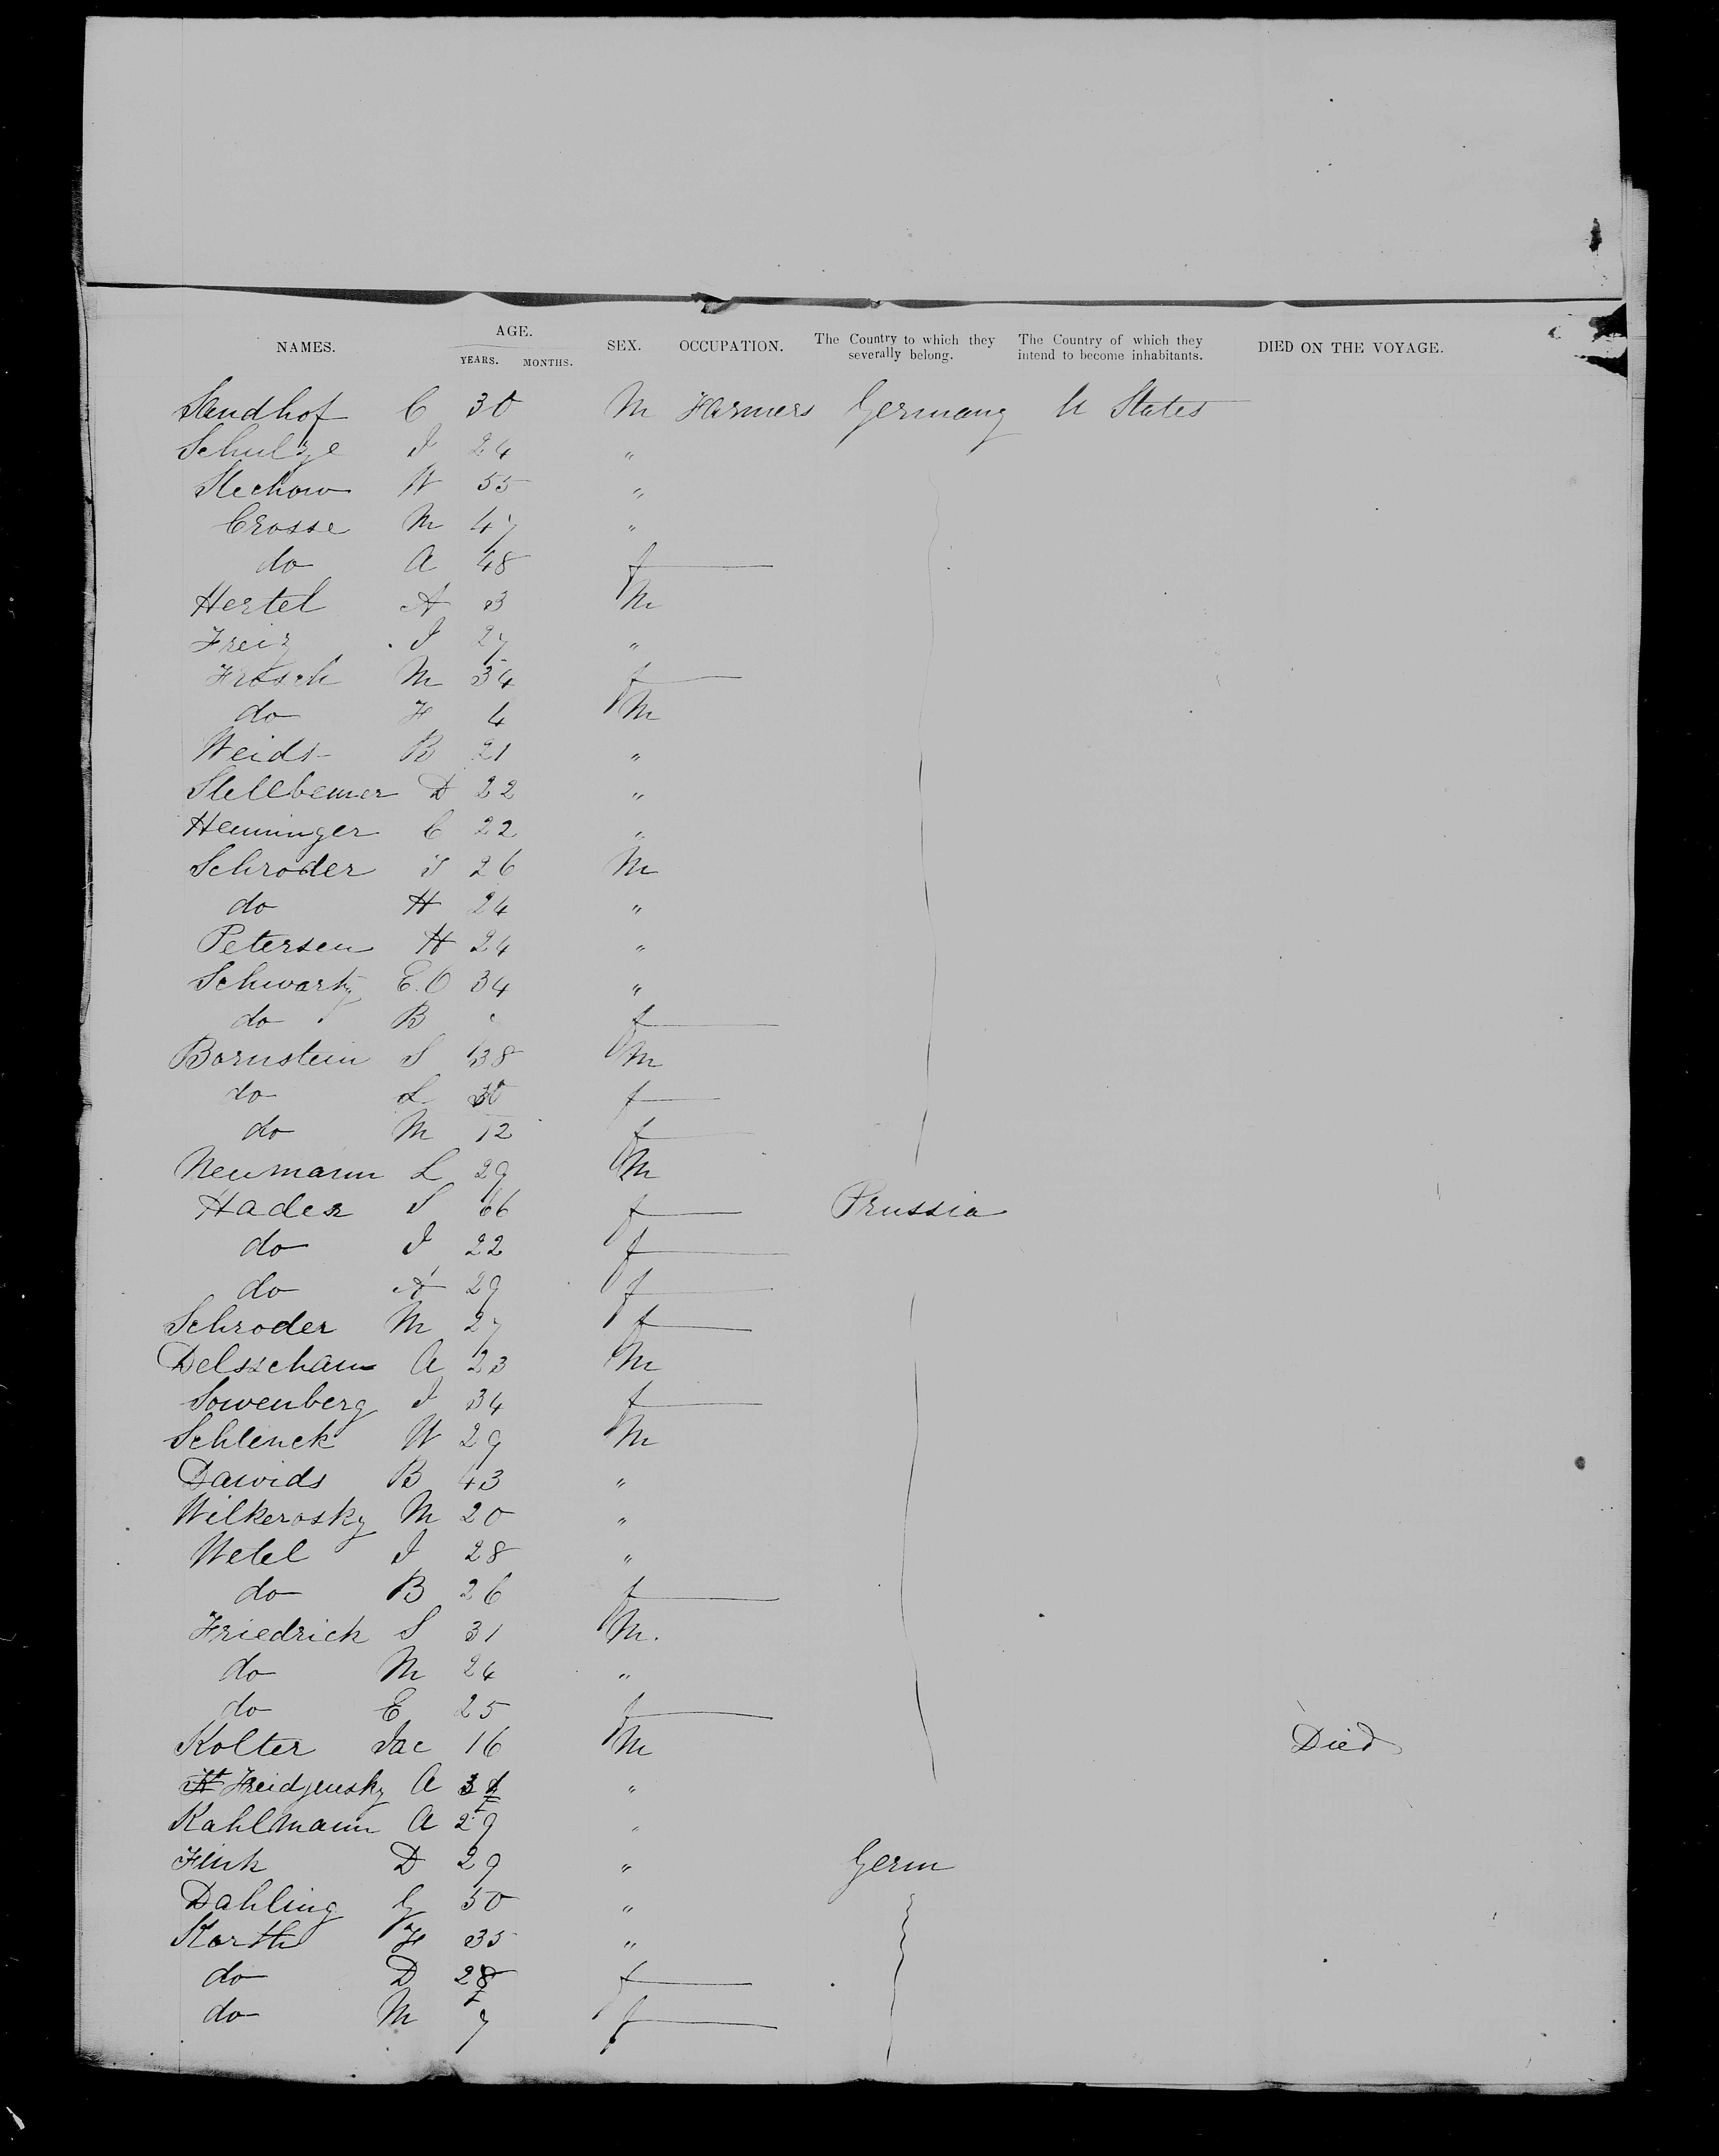 NAMES. AGE. YEARS. MONTHS. SEX. OCCUPATION. The Country to which they severally belong. The Country of which they intend to become inhabitants. DIED ON THE VOYAGE.
Sandhof C 30 M Farmers Germany U States
Schulze J 24 "
Stechow W 55 "
Crosse M 47 "
do A 48 f
Hertel A 3 M
Freiz J 27 "
Frosch M 34 f
do F 4 M
Weidt B 21 "
Stellbemer D 22 "
Henninger C 22 "
Schroder J 26 M
do H 24 "
Petersen H 24 "
Schwartz E. O 34 "
do B f
Bornstein S 38 M
do L 30 f
do M 12 f
Neumann L 29 M
Hader S 66 f Prussia
do J 22 f
do A 29 f
Schroder M 27 f
Delsscham A 23 M
Sowenberg J 34 f
Schlenck W 29 M
Dawids B 43 "
Wilkerosky M 20 "
Wetel J 28 "
do B 26 f
Friedrich S 31 M.
do M 24 "
do E 25 f
Kolter Jac 16 M Died
A "
Kahlmann A 29 "
Fink D 29 " Germ
Dahling G 50 "
Korth F 35 "
do D 28 f
do M 7 f